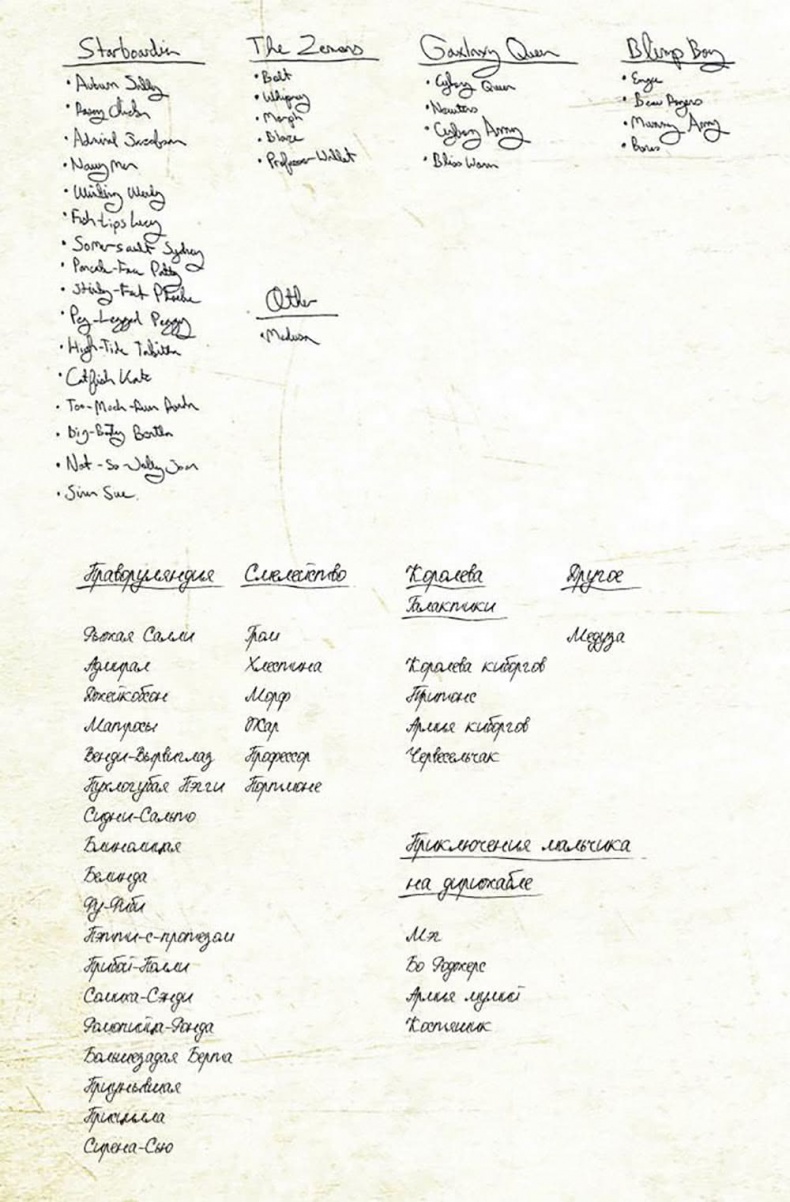 Starboardin
• Auburn Sally
• Navy Men
• Fish-Lips Lucy
• Somersault Sydney
• Peg-Legged Peggy
• High-Tide Tabitha
• Catfish Kate
• Too-Much-Rum
• Big-Booty Bertha
• Not-So-Jolly Joan
• Siren Sue
The Zenons
• Bolt
• Whipray
• Morph
• Blaze
• Professor Wallet
Other
• Medusa
Queen
• Cyborg Queen
• Newtons
• Cyborg Army
• Bliss Worm
Blimp Boy
• Beau Rogers
• Mummy Army
• Bones
Праворуляндия
Рыжая Салли
Адмирал
Джейкобсон
Матросы
Венди-Вырвиглаз
Пухлогубая Пэгги
Сидни-Сальто
Блинолицая
Белинда
Фу-Фиби
Пэтти-с-протезом
Прибой-Полли
Сомиха-Сэнди
Ромопийца-Ронда
Большезадая Берта
Приунывшая
Присцилла
Сирена-Сью
Смелейство
Гром
Хлестина
Морф
Жар
Профессор
Портмоне
Королева
Галактики
Королева киборгов
Притонс
Армия киборгов
Червесельчак
Другое
Медуза
Приключения мальчика
на дирижабле
Мэ
Бо Роджерс
Армия мумий
Костяшик